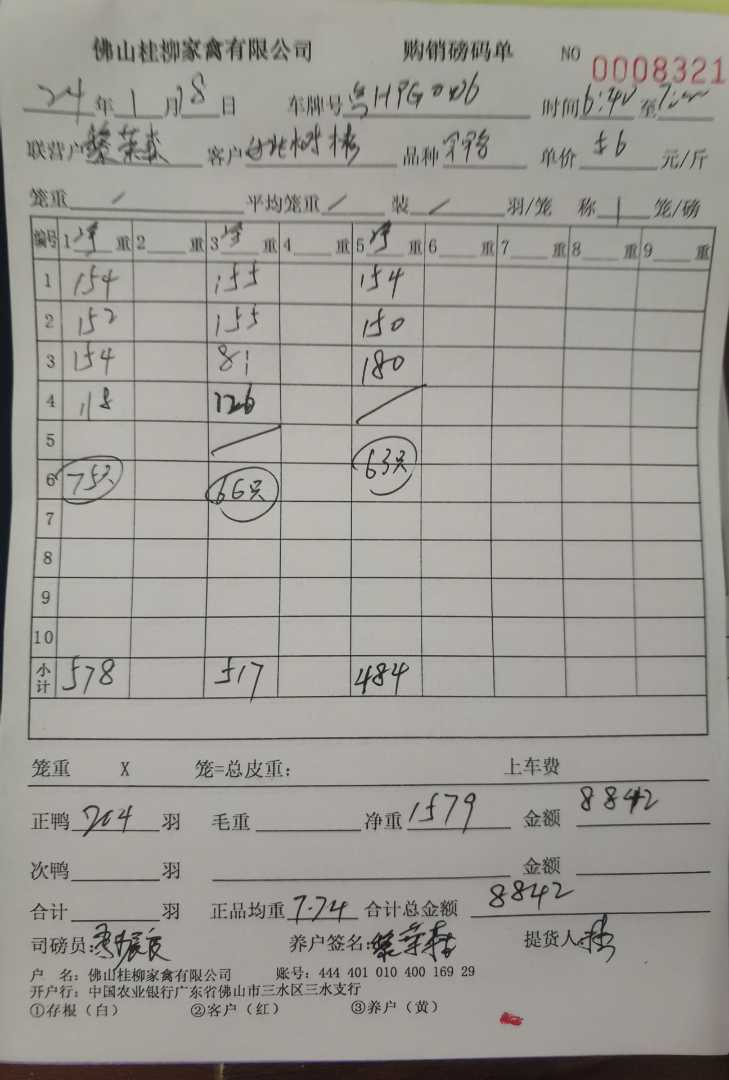 佛山桂柳家禽有限公司 购销磅码单 NO 0008321
24年1月18日 车牌号 时间6:40至7:
联营户 客户 品种 单价5.6元/斤
笼重/ 平均笼重/ 装/羽/笼 称1笼/磅
编号 1净重 2重 3净重 4重 5净重 6重 7重 8重 9重
1 154 155 154
2 152 155 150
3 154 81 180
4 118 126 /
5 /
6 75只 66只 63只
7
8
9
10
小计 578 517 484
笼重 X 笼=总皮重: 上车费
正鸭204羽 毛重 净重1579 金额8842
次鸭 羽 金额
合计 羽 正品均重7.74 合计总金额8842
司磅员: 养户签名: 提货人:
户 名:佛山桂柳家禽有限公司 账号:444 401 010 400 169 29
开户行:中国农业银行广东省佛山市三水区三水支行
①存根(白) ②客户(红) ③养户(黄)